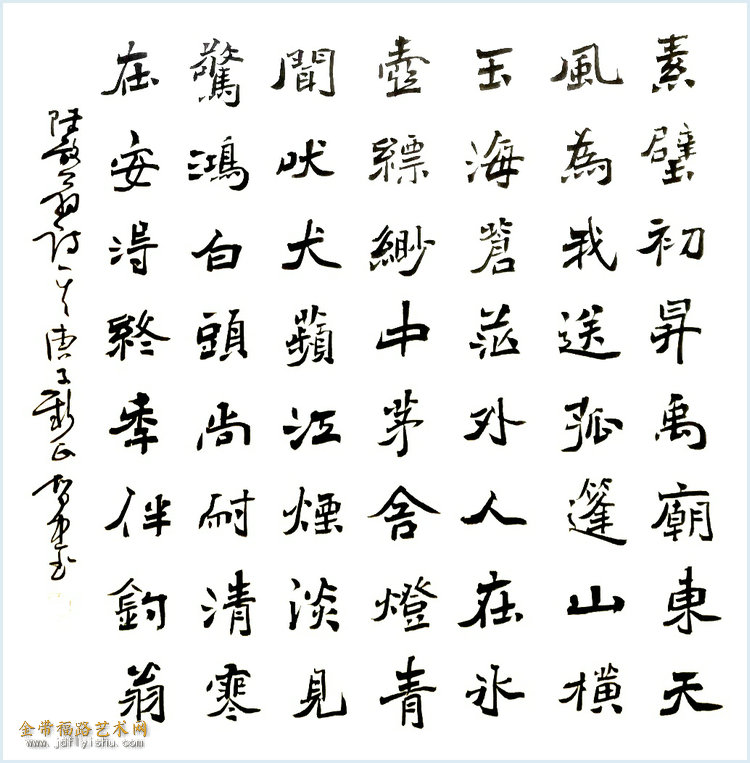 素璧初昇禹廟東天
風為我送孤篷山橫
玉海蒼茫外人在氷
壺縹緲中茅舍燈青
聞吠犬蘋江煙淡見
驚鴻白頭尚耐清寒
在安得終秊伴釣翁
陸放翁詩一首庚子新正
金带福路艺术网
www.jdflyishu.com